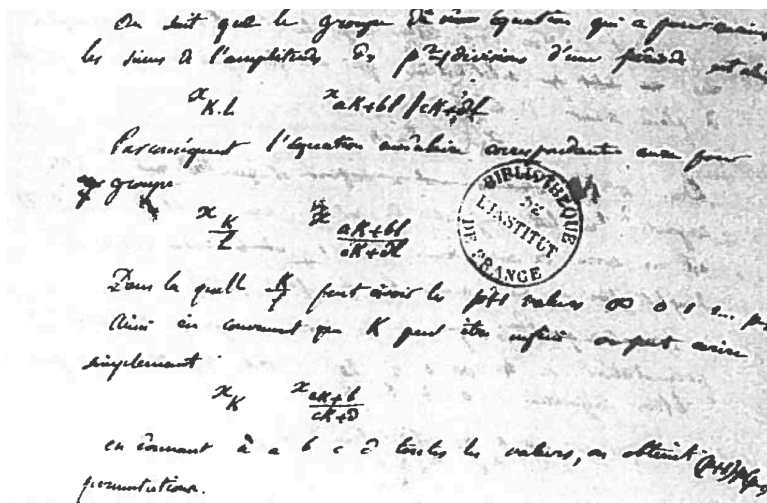 On sait que le groupe de cette équation qui a pour racines
les sinus de l'amplitude des p² divisions d'une période est
x K.l x aK+bl/cK+dl
Par conséquent l'équation modulaire correspondante aura pour
groupe
x K/l x aK+bl/cK+dl
Dans laquelle K/l peut avoir les p+1 valeurs ∞ 0 1 2...
Ainsi en convenant que K peut être infini on peut écrire
simplement
x K x aK+b/cK+d
en donnant à a b c d toutes les valeurs, on obtient (p+1)p(p-
permutations.
BIBLIOTHÈQUE
DE
L'INSTITUT
DE FRANCE